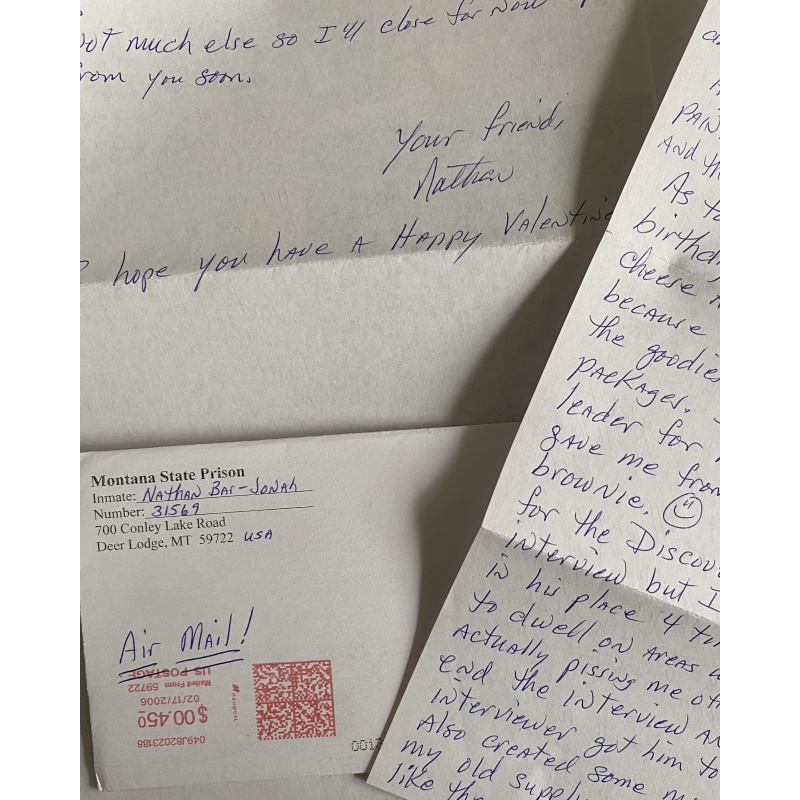 not much else so I'll close for Now
from you soon.
Your friend,
Nathan
hope you have a Happy Valentine
Montana State Prison
Inmate: Nathan Bar-Jonah
Number: 31569
700 Conley Lake Road
Deer Lodge, MT 59722 USA
Air Mail!
US POSTAGE
Mailed From 59722
02/17/2006
$00.450
049J82023188
neopost
0012
And th
As to
birthday
cheese
because
the goodies
packages.
leader for
gave me from
brownie.
for the Discov
interview but I
in his place 4
to dwell on areas
actually pissing me off
end the interview an
interviewer got him to
Also created some
my old supply
like the